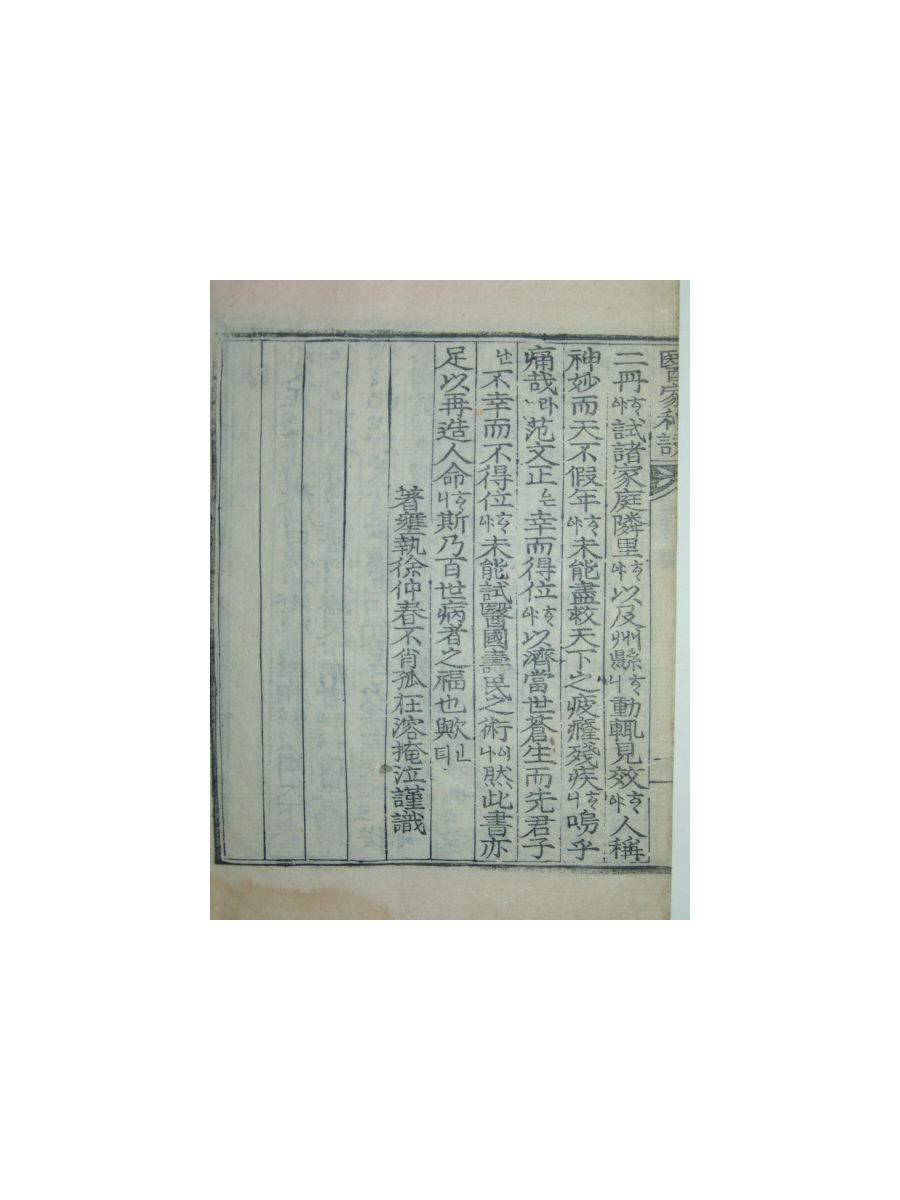 醫家秘訣
二冊ᄒᆞ야試諸家庭隣里ᄒᆞ야以及州縣ᄒᆞ니動輒見效ᄒᆞ야人稱
神妙而天不假年ᄒᆞ야未能盡救天下之疲癃殘疾ᄒᆞ니嗚乎
痛哉라范文正은幸而得位ᄒᆞ야以濟當世蒼生而先君子
난不幸而不得位ᄒᆞ야未能試醫國壽民之術이나然此書亦
足以再造人命ᄒᆞ니斯乃百世病者之福也歟ᅟᅵᆫ뎌
著壅執徐仲春不肖孤在溶掩泣謹識